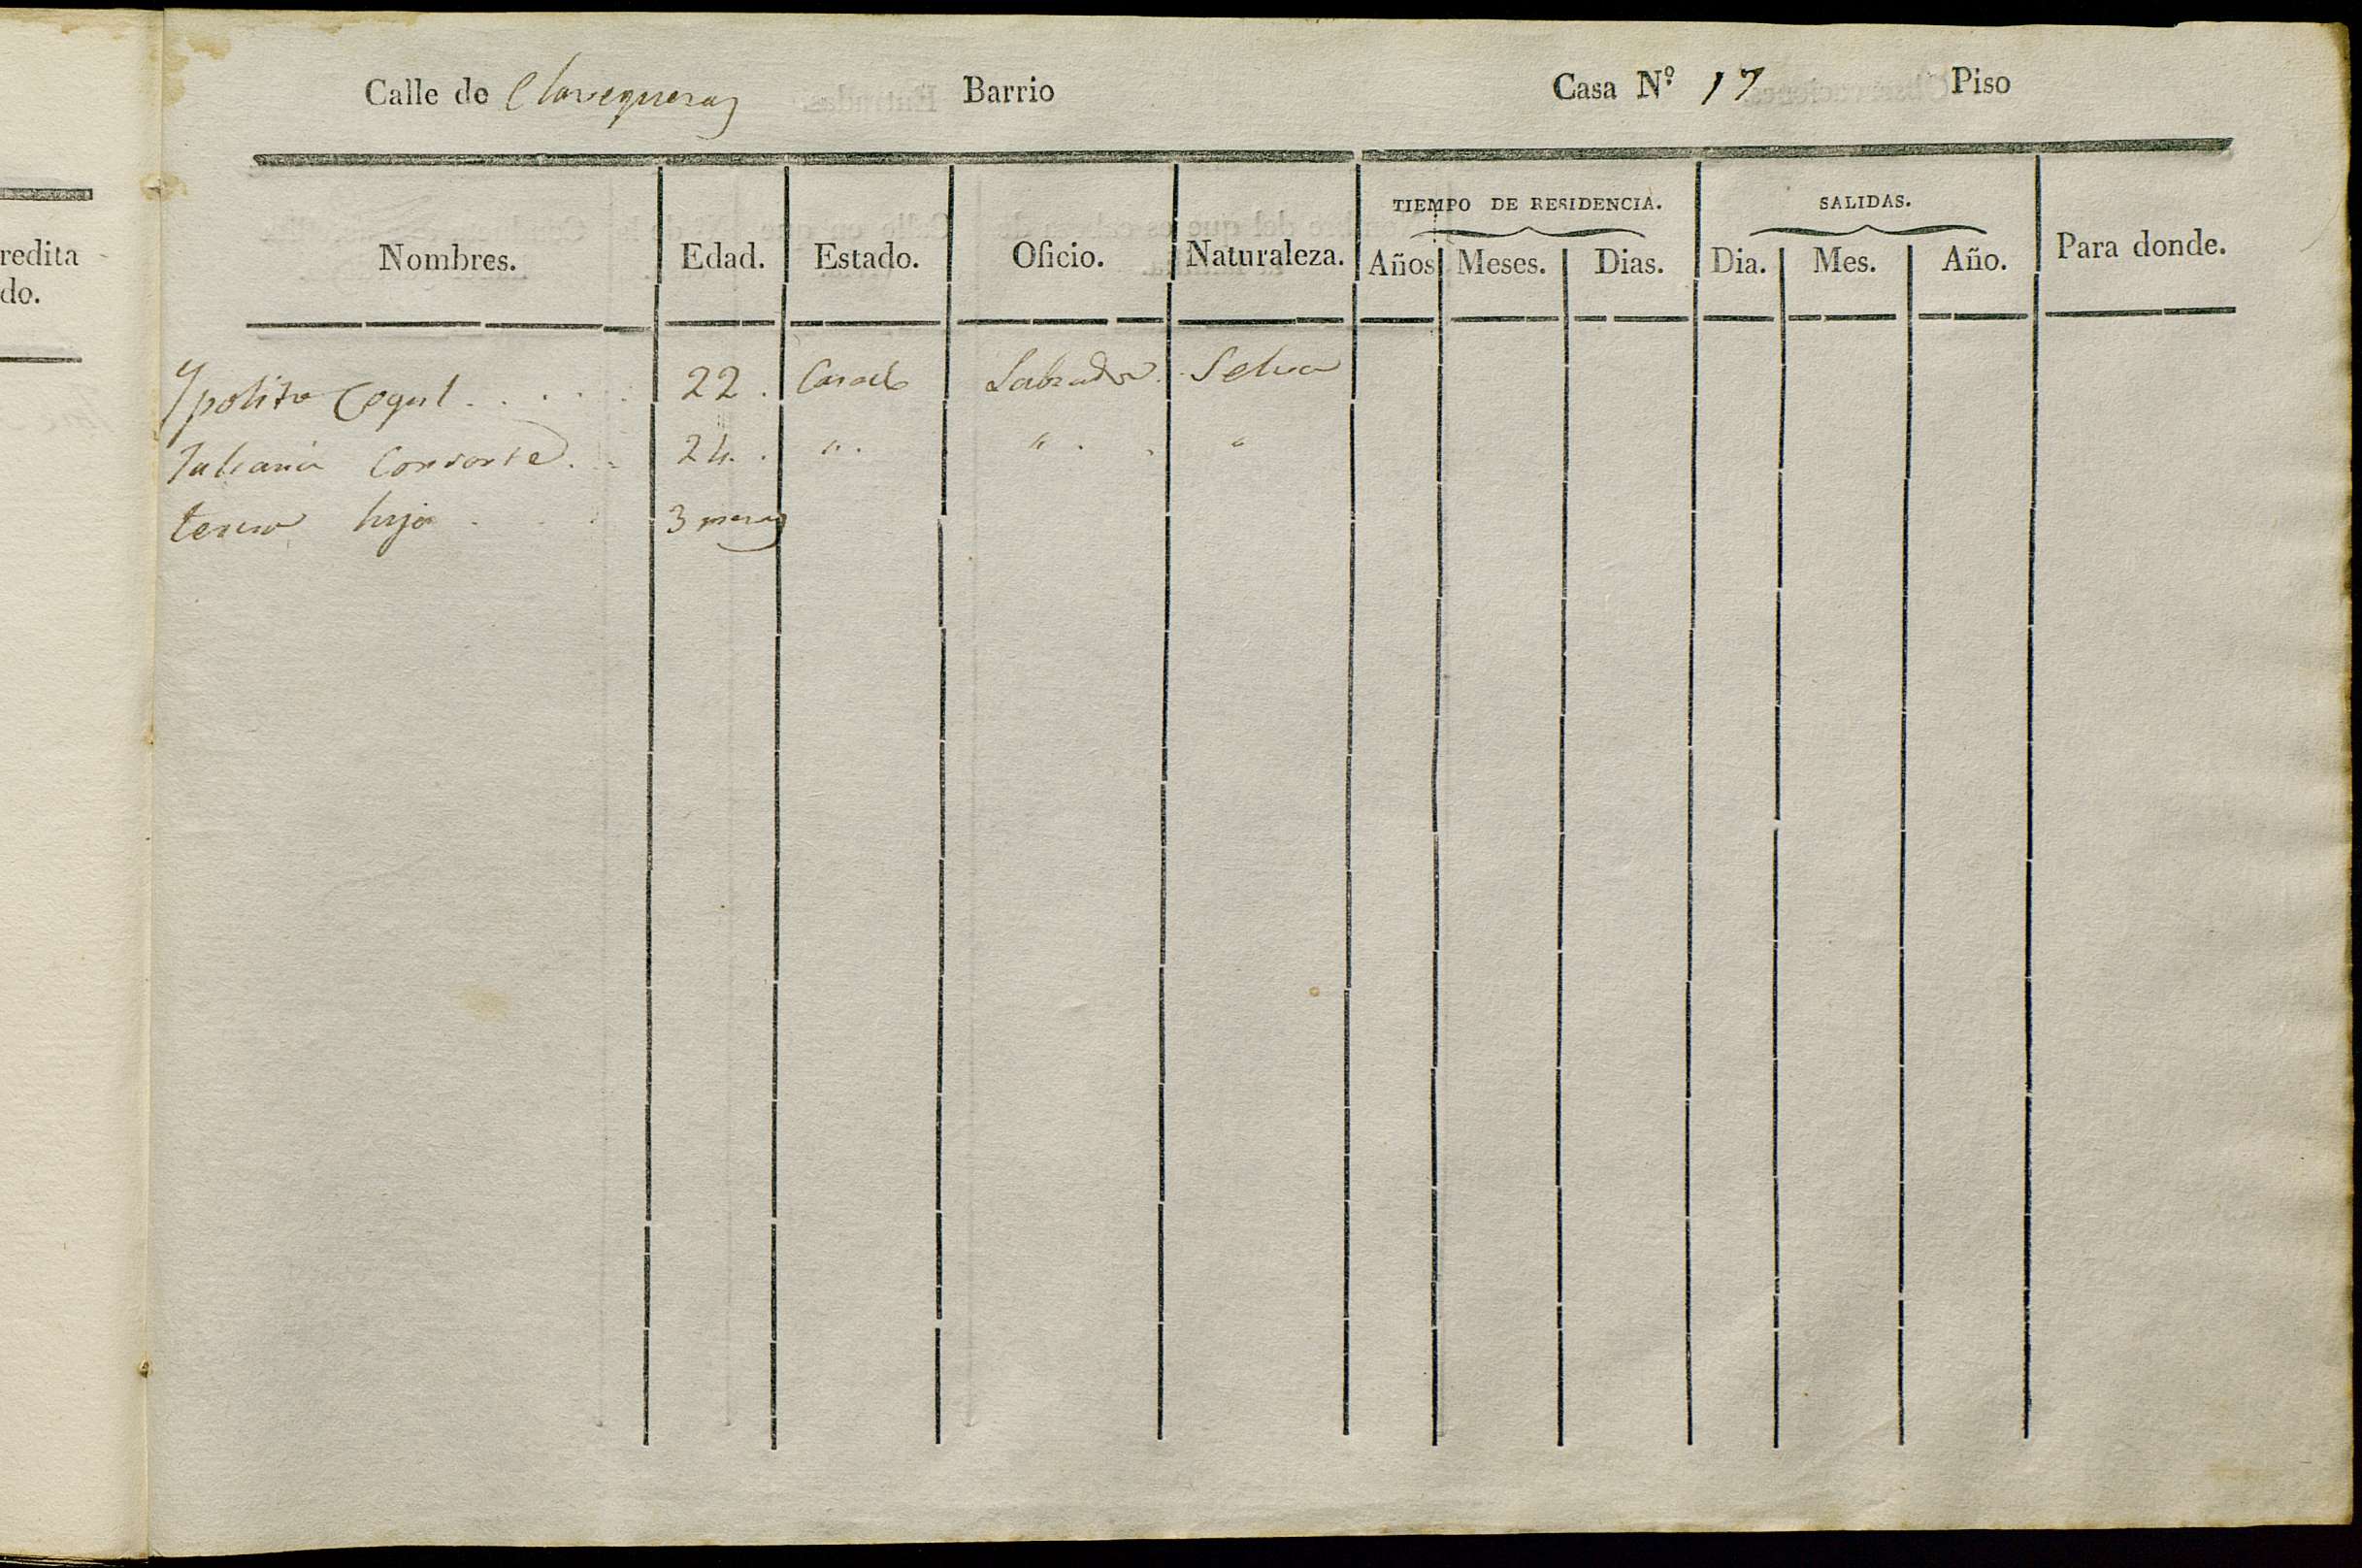 redita
do.
Calle de Clavegueras Barrio Casa Nº 17 Piso
TIEMPO DE RESIDENCIA. SALIDAS.
Nombres. Edad. Estado. Oficio. Naturaleza. Años Meses. Dias. Dia. Mes. Año. Para donde.
Ypolito Cogul . . . . . 22 . Casado Labrador . Selva
Juliana Consorte . . 24 . " . " . . "
teresa hija . . . 3 meses